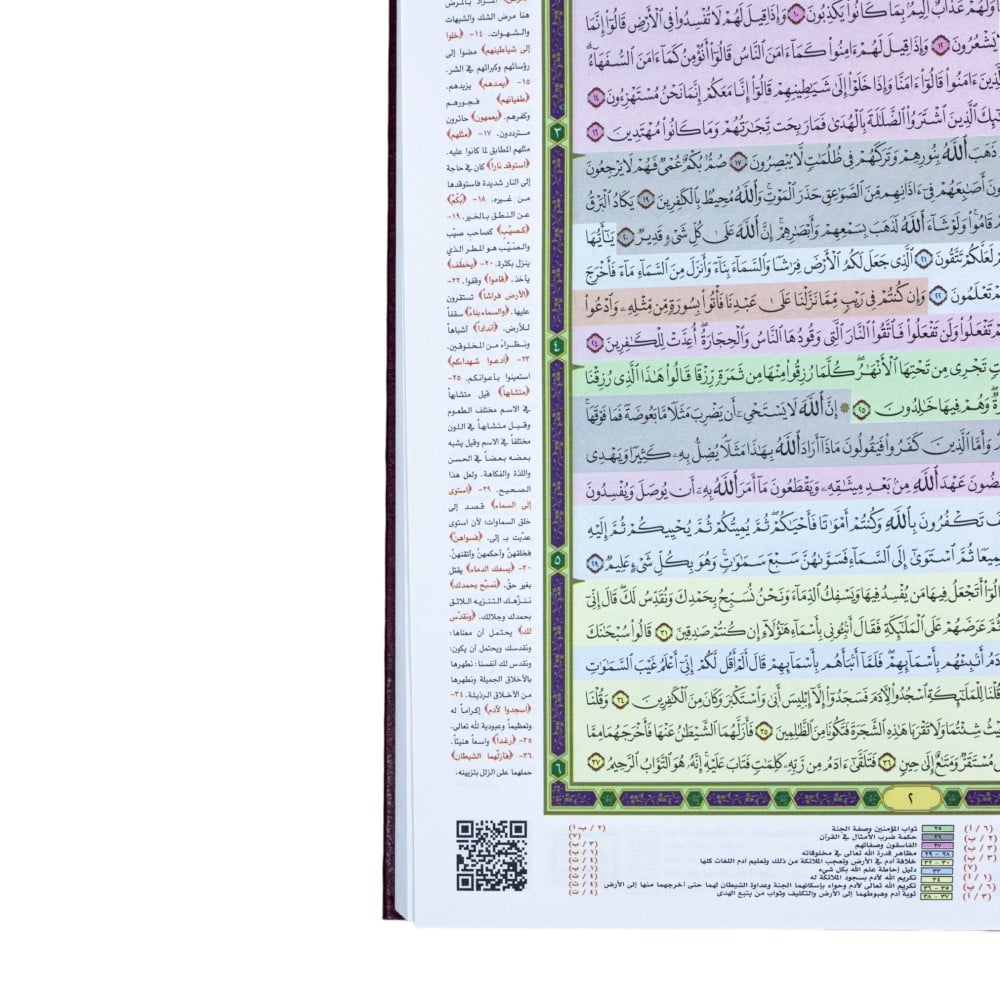 وَلَهُمْ عَذَابٌ أَلِيمٌۢ بِمَا كَانُوا۟ يَكْذِبُونَ ١٠ وَإِذَا قِيلَ لَهُمْ لَا تُفْسِدُوا۟ فِى ٱلْأَرْضِ قَالُوٓا۟ إِنَّمَا
يَشْعُرُونَ ١٢ وَإِذَا قِيلَ لَهُمْ ءَامِنُوا۟ كَمَآ ءَامَنَ ٱلنَّاسُ قَالُوٓا۟ أَنُؤْمِنُ كَمَآ ءَامَنَ ٱلسُّفَهَآءُ
ٱلَّذِينَ ءَامَنُوا۟ قَالُوٓا۟ ءَامَنَّا وَإِذَا خَلَوْا۟ إِلَىٰ شَيَـٰطِينِهِمْ قَالُوٓا۟ إِنَّا مَعَكُمْ إِنَّمَا نَحْنُ مُسْتَهْزِءُونَ ١٤
ٱلَّذِينَ ٱشْتَرَوُا۟ ٱلضَّلَـٰلَةَ بِٱلْهُدَىٰ فَمَا رَبِحَت تِّجَـٰرَتُهُمْ وَمَا كَانُوا۟ مُهْتَدِينَ ١٦
ذَهَبَ ٱللَّهُ بِنُورِهِمْ وَتَرَكَهُمْ فِى ظُلُمَـٰتٍ لَّا يُبْصِرُونَ ١٧ صُمٌّۢ بُكْمٌ عُمْىٌ فَهُمْ لَا يَرْجِعُونَ
أَصَـٰبِعَهُمْ فِىٓ ءَاذَانِهِم مِّنَ ٱلصَّوَٰعِقِ حَذَرَ ٱلْمَوْتِ وَٱللَّهُ مُحِيطٌۢ بِٱلْكَـٰفِرِينَ ١٩ يَكَادُ ٱلْبَرْقُ
قَامُوا۟ وَلَوْ شَآءَ ٱللَّهُ لَذَهَبَ بِسَمْعِهِمْ وَأَبْصَـٰرِهِمْ إِنَّ ٱللَّهَ عَلَىٰ كُلِّ شَىْءٍ قَدِيرٌ ٢٠ يَـٰٓأَيُّهَا
لَعَلَّكُمْ تَتَّقُونَ ٢١ ٱلَّذِى جَعَلَ لَكُمُ ٱلْأَرْضَ فِرَٰشًا وَٱلسَّمَآءَ بِنَآءً وَأَنزَلَ مِنَ ٱلسَّمَآءِ مَآءً فَأَخْرَجَ
تَعْلَمُونَ ٢٢ وَإِن كُنتُمْ فِى رَيْبٍ مِّمَّا نَزَّلْنَا عَلَىٰ عَبْدِنَا فَأْتُوا۟ بِسُورَةٍ مِّن مِّثْلِهِۦ وَٱدْعُوا۟
تَفْعَلُوا۟ وَلَن تَفْعَلُوا۟ فَٱتَّقُوا۟ ٱلنَّارَ ٱلَّتِى وَقُودُهَا ٱلنَّاسُ وَٱلْحِجَارَةُ أُعِدَّتْ لِلْكَـٰفِرِينَ ٢٤
تَجْرِى مِن تَحْتِهَا ٱلْأَنْهَـٰرُ كُلَّمَا رُزِقُوا۟ مِنْهَا مِن ثَمَرَةٍ رِّزْقًا قَالُوا۟ هَـٰذَا ٱلَّذِى رُزِقْنَا
وَهُمْ فِيهَا خَـٰلِدُونَ ٢٥ ۞ إِنَّ ٱللَّهَ لَا يَسْتَحْىِۦٓ أَن يَضْرِبَ مَثَلًا مَّا بَعُوضَةً فَمَا فَوْقَهَا
وَأَمَّا ٱلَّذِينَ كَفَرُوا۟ فَيَقُولُونَ مَاذَآ أَرَادَ ٱللَّهُ بِهَـٰذَا مَثَلًا يُضِلُّ بِهِۦ كَثِيرًا وَيَهْدِى
عَهْدَ ٱللَّهِ مِنۢ بَعْدِ مِيثَـٰقِهِۦ وَيَقْطَعُونَ مَآ أَمَرَ ٱللَّهُ بِهِۦٓ أَن يُوصَلَ وَيُفْسِدُونَ
تَكْفُرُونَ بِٱللَّهِ وَكُنتُمْ أَمْوَٰتًا فَأَحْيَـٰكُمْ ثُمَّ يُمِيتُكُمْ ثُمَّ يُحْيِيكُمْ ثُمَّ إِلَيْهِ
ثُمَّ ٱسْتَوَىٰٓ إِلَى ٱلسَّمَآءِ فَسَوَّىٰهُنَّ سَبْعَ سَمَـٰوَٰتٍ وَهُوَ بِكُلِّ شَىْءٍ عَلِيمٌ ٢٩
أَتَجْعَلُ فِيهَا مَن يُفْسِدُ فِيهَا وَيَسْفِكُ ٱلدِّمَآءَ وَنَحْنُ نُسَبِّحُ بِحَمْدِكَ وَنُقَدِّسُ لَكَ قَالَ إِنِّىٓ
ثُمَّ عَرَضَهُمْ عَلَى ٱلْمَلَـٰٓئِكَةِ فَقَالَ أَنۢبِـُٔونِى بِأَسْمَآءِ هَـٰٓؤُلَآءِ إِن كُنتُمْ صَـٰدِقِينَ ٣١ قَالُوا۟ سُبْحَـٰنَكَ
أَنۢبِئْهُم بِأَسْمَآئِهِمْ فَلَمَّآ أَنۢبَأَهُم بِأَسْمَآئِهِمْ قَالَ أَلَمْ أَقُل لَّكُمْ إِنِّىٓ أَعْلَمُ غَيْبَ ٱلسَّمَـٰوَٰتِ
قُلْنَا لِلْمَلَـٰٓئِكَةِ ٱسْجُدُوا۟ لِـَٔادَمَ فَسَجَدُوٓا۟ إِلَّآ إِبْلِيسَ أَبَىٰ وَٱسْتَكْبَرَ وَكَانَ مِنَ ٱلْكَـٰفِرِينَ ٣٤ وَقُلْنَا
شِئْتُمَا وَلَا تَقْرَبَا هَـٰذِهِ ٱلشَّجَرَةَ فَتَكُونَا مِنَ ٱلظَّـٰلِمِينَ ٣٥ فَأَزَلَّهُمَا ٱلشَّيْطَـٰنُ عَنْهَا فَأَخْرَجَهُمَا مِمَّا
مُسْتَقَرٌّ وَمَتَـٰعٌ إِلَىٰ حِينٍ ٣٦ فَتَلَقَّىٰٓ ءَادَمُ مِن رَّبِّهِۦ كَلِمَـٰتٍ فَتَابَ عَلَيْهِ إِنَّهُۥ هُوَ ٱلتَّوَّابُ ٱلرَّحِيمُ ٣٧
٢
٣
٤
٥
٦
هنا مرض الشك والشبهات
والشهوات. ١٤- ﴿خلوا
إلى شياطينهم﴾ مضوا إلى
رؤسائهم وكبرائهم في الشر.
١٥- ﴿يمدهم﴾ يزيدهم.
﴿طغيانهم﴾ فجورهم
وكفرهم. ﴿يعمهون﴾ حائرون
مترددون. ١٧- ﴿مثلهم﴾
مثلهم المطابق لما كانوا عليه.
﴿استوقد ناراً﴾ كان في حاجة
إلى النار شديدة فاستوقدها
من غيره. ١٨- ﴿بُكْمٌ﴾
عن النطق بالخير. ١٩-
﴿كصيّب﴾ كصاحب صيّب
والصَيّب هو المطر الذي
ينزل بكثرة. ٢٠- ﴿يخطف﴾
يأخذ. ﴿قاموا﴾ وقفوا. ٢٢-
﴿الأرض فراشاً﴾ تستقرون
عليها. ﴿والسماء بناء﴾ سقفاً
للأرض. ﴿أنداداً﴾ أشباهاً
ونظراء من المخلوقين.
٢٣- ﴿ادعوا شهداءكم﴾
استعينوا بأعوانكم. ٢٥-
﴿متشابهاً﴾ قيل متشابهاً
في الاسم مختلف الطعوم
وقيل متشابهاً في اللون
مختلفاً في الاسم وقيل يشبه
بعضه بعضاً في الحسن
واللذة والفكاهة. ولعل هذا
الصحيح. ٢٩- ﴿استوى
إلى السماء﴾ قصد إلى
خلق السماوات؛ لأن استوى
عدّيت بـ إلى. ﴿فسواهنّ﴾
فخلقهنّ وأحكمهنّ وأتقنهنّ.
٣٠- ﴿يسفك الدماء﴾ يقتل
بغير حقّ. ﴿نسبّح بحمدك﴾
ننزّهك التنزيه اللائق
بحمدك وجلالك. ﴿ونقدّس
لك﴾ يحتمل أن معناها:
ونقدسك ويحتمل أن يكون:
ونقدس لك أنفسنا: نطهرها
بالأخلاق الجميلة ونطهرها
من الأخلاق الرذيلة. ٣٤-
﴿اسجدوا لآدم﴾ إكراماً له
وتعظيماً وعبودية لله تعالى.
٣٥- ﴿رغداً﴾ واسعاً هنيئاً.
٣٦- ﴿فأزلّهما الشيطان﴾
حملهما على الزلل بتزيينه.
٢٥ ثواب المؤمنين وصفة الجنة
٢٦ حكمة ضرب الأمثال في القرآن
٢٧ الفاسقون وصفاتهم
٢٨ - ٢٩ مظاهر قدرة الله تعالى في مخلوقاته
٣٠ - ٣٢ خلافة آدم في الأرض وتعجب الملائكة من ذلك وتعليم آدم اللغات كلها
٣٣ دليل إحاطة علم الله بكل شيء
٣٤ تكريم الله لآدم بسجود الملائكة له
٣٥ - ٣٦ تكريم الله تعالى لآدم وحواء بإسكانهما الجنة وعداوة الشيطان لهما حتى أخرجهما منها إلى الأرض
٣٧ - ٣٨ توبة آدم وهبوطهما إلى الأرض والتكليف وثواب من يتبع الهدى